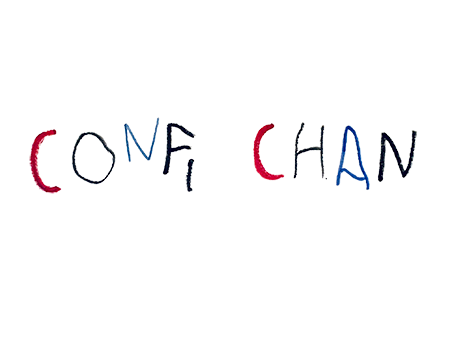 CONFI CHAN